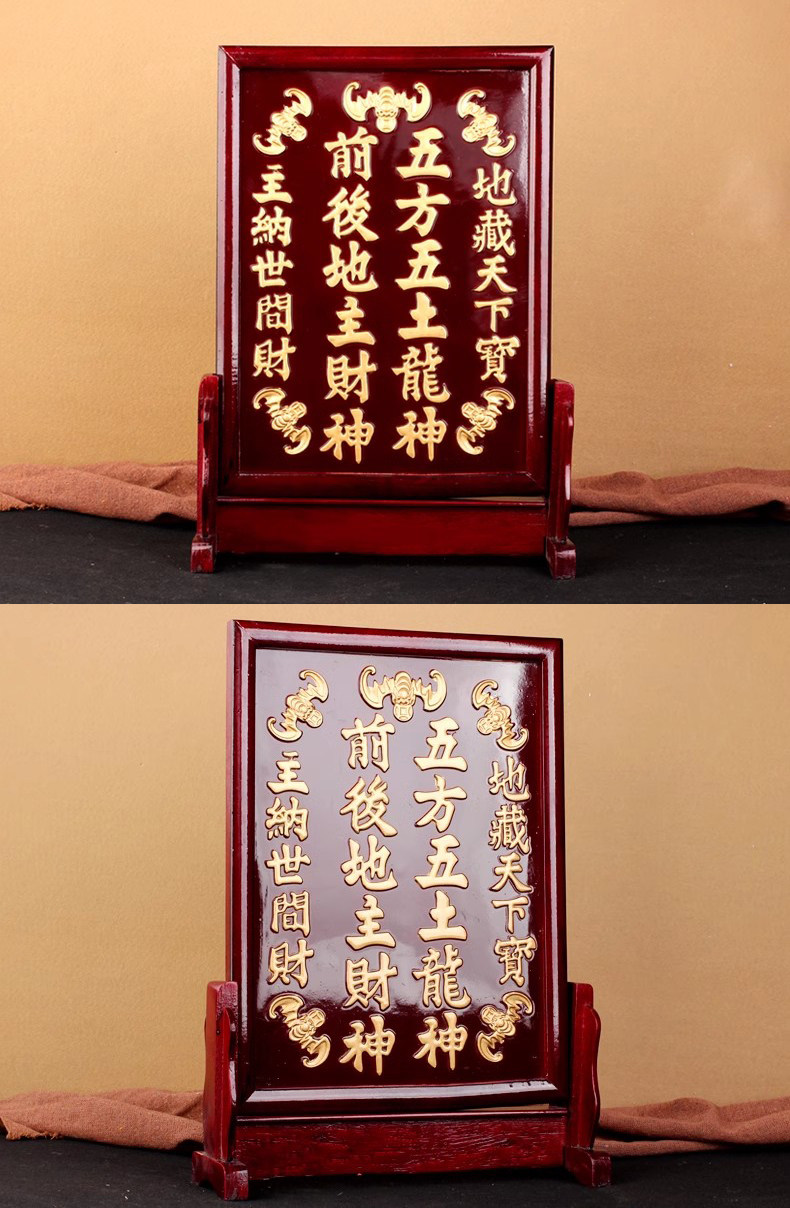 地藏天下寳
五方五土龍神
前後地主財神
主納世間財
地藏天下寳
五方五土龍神
前後地主財神
主納世間財